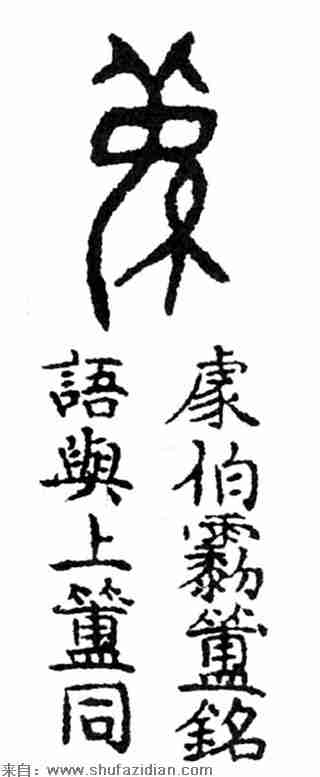 伯簠銘
語與上簠同
来自：www.shufazidian.com